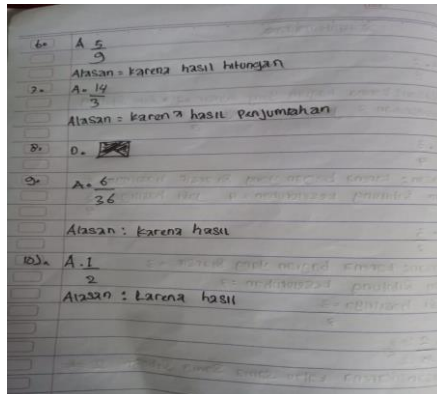 6. A 5/9
Alasan = karena hasil hitungan
7. A. 14/3
Alasan = karena hasil Penjumlahan
8. D.
9. A. 6/36
Alasan : karena hasil
10). A. 1/2
Alasan : karena hasil